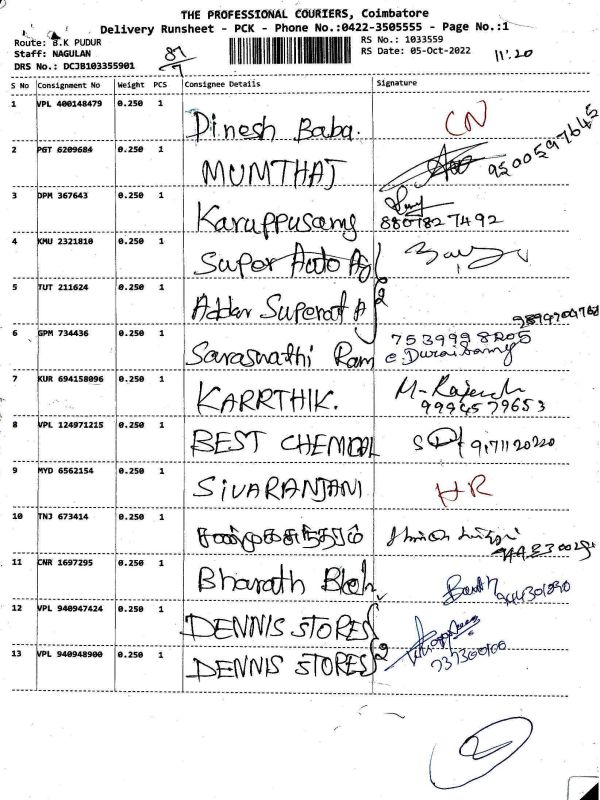 THE PROFESSIONAL COURIERS, Coimbatore
Delivery Runsheet - PCK - Phone No.:0422-3505555 - Page No.:1
Route: B.K PUDUR
RS No.: 1033559
Staff: NAGULAN
RS Date: 05-Oct-2022
11'.20
DRS No.: DCJB103355901
S No Consignment No Weight PCS Consignee Details Signature
1 VPL 400148479 0.250 1 Dinesh Baba. CN
2 PGT 6209684 0.250 1 MUMTHAJ 9500597645
3 DPM 367643 0.250 1 Karuppusamy 8807827492
4 KMU 2321810 0.250 1 Super Auto Ag
5 TUT 211624 0.250 1 Super A 2
6 GPM 734436 0.250 1 Saraswathi Ram 7539998205
C Duraisamy
7 KUR 694158096 0.250 1 KARRTHIK. M-Rajendh
9994579653
8 VPL 124971215 0.250 1 BEST CHEMICAL
9 MYD 6562154 0.250 1 SIVARANJANI HR
10 TNJ 673414 0.250 1 சண்முகசுந்தரம்
11 CNR 1697295 0.250 1 Bharath
12 VPL 940947424 0.250 1 DENNIS STORES
13 VPL 940948900 0.250 1 DENNIS STORES 2
2